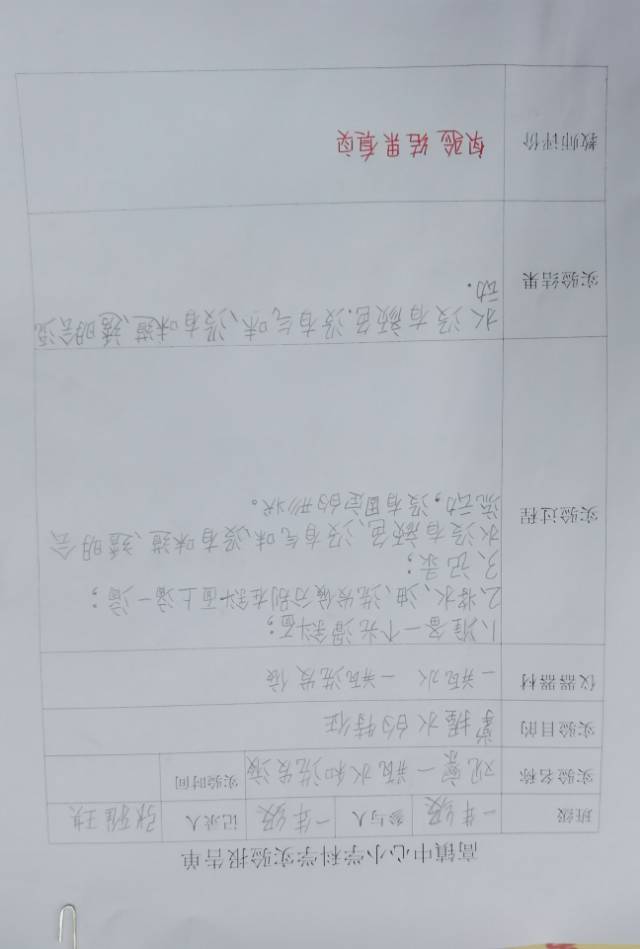 高镇中心小学科学实验报告单
班级 一年级 参与人 一年级 记录人 张雅琪
实验名称 观察一瓶水和洗发液 实验时间
实验目的 掌握水的特征
仪器器材 一瓶水 一瓶洗发液
实验过程
1、准备一个光滑斜面；
2、将水、油、洗发液分别在斜面上滴一滴；
3、记录；
水没有颜色、没有气味、没有味道、透明会
流动，没有固定的形状。
实验结果
水没有颜色、没有气味、没有味道、透明会流
动.
教师评价 实验结果真实